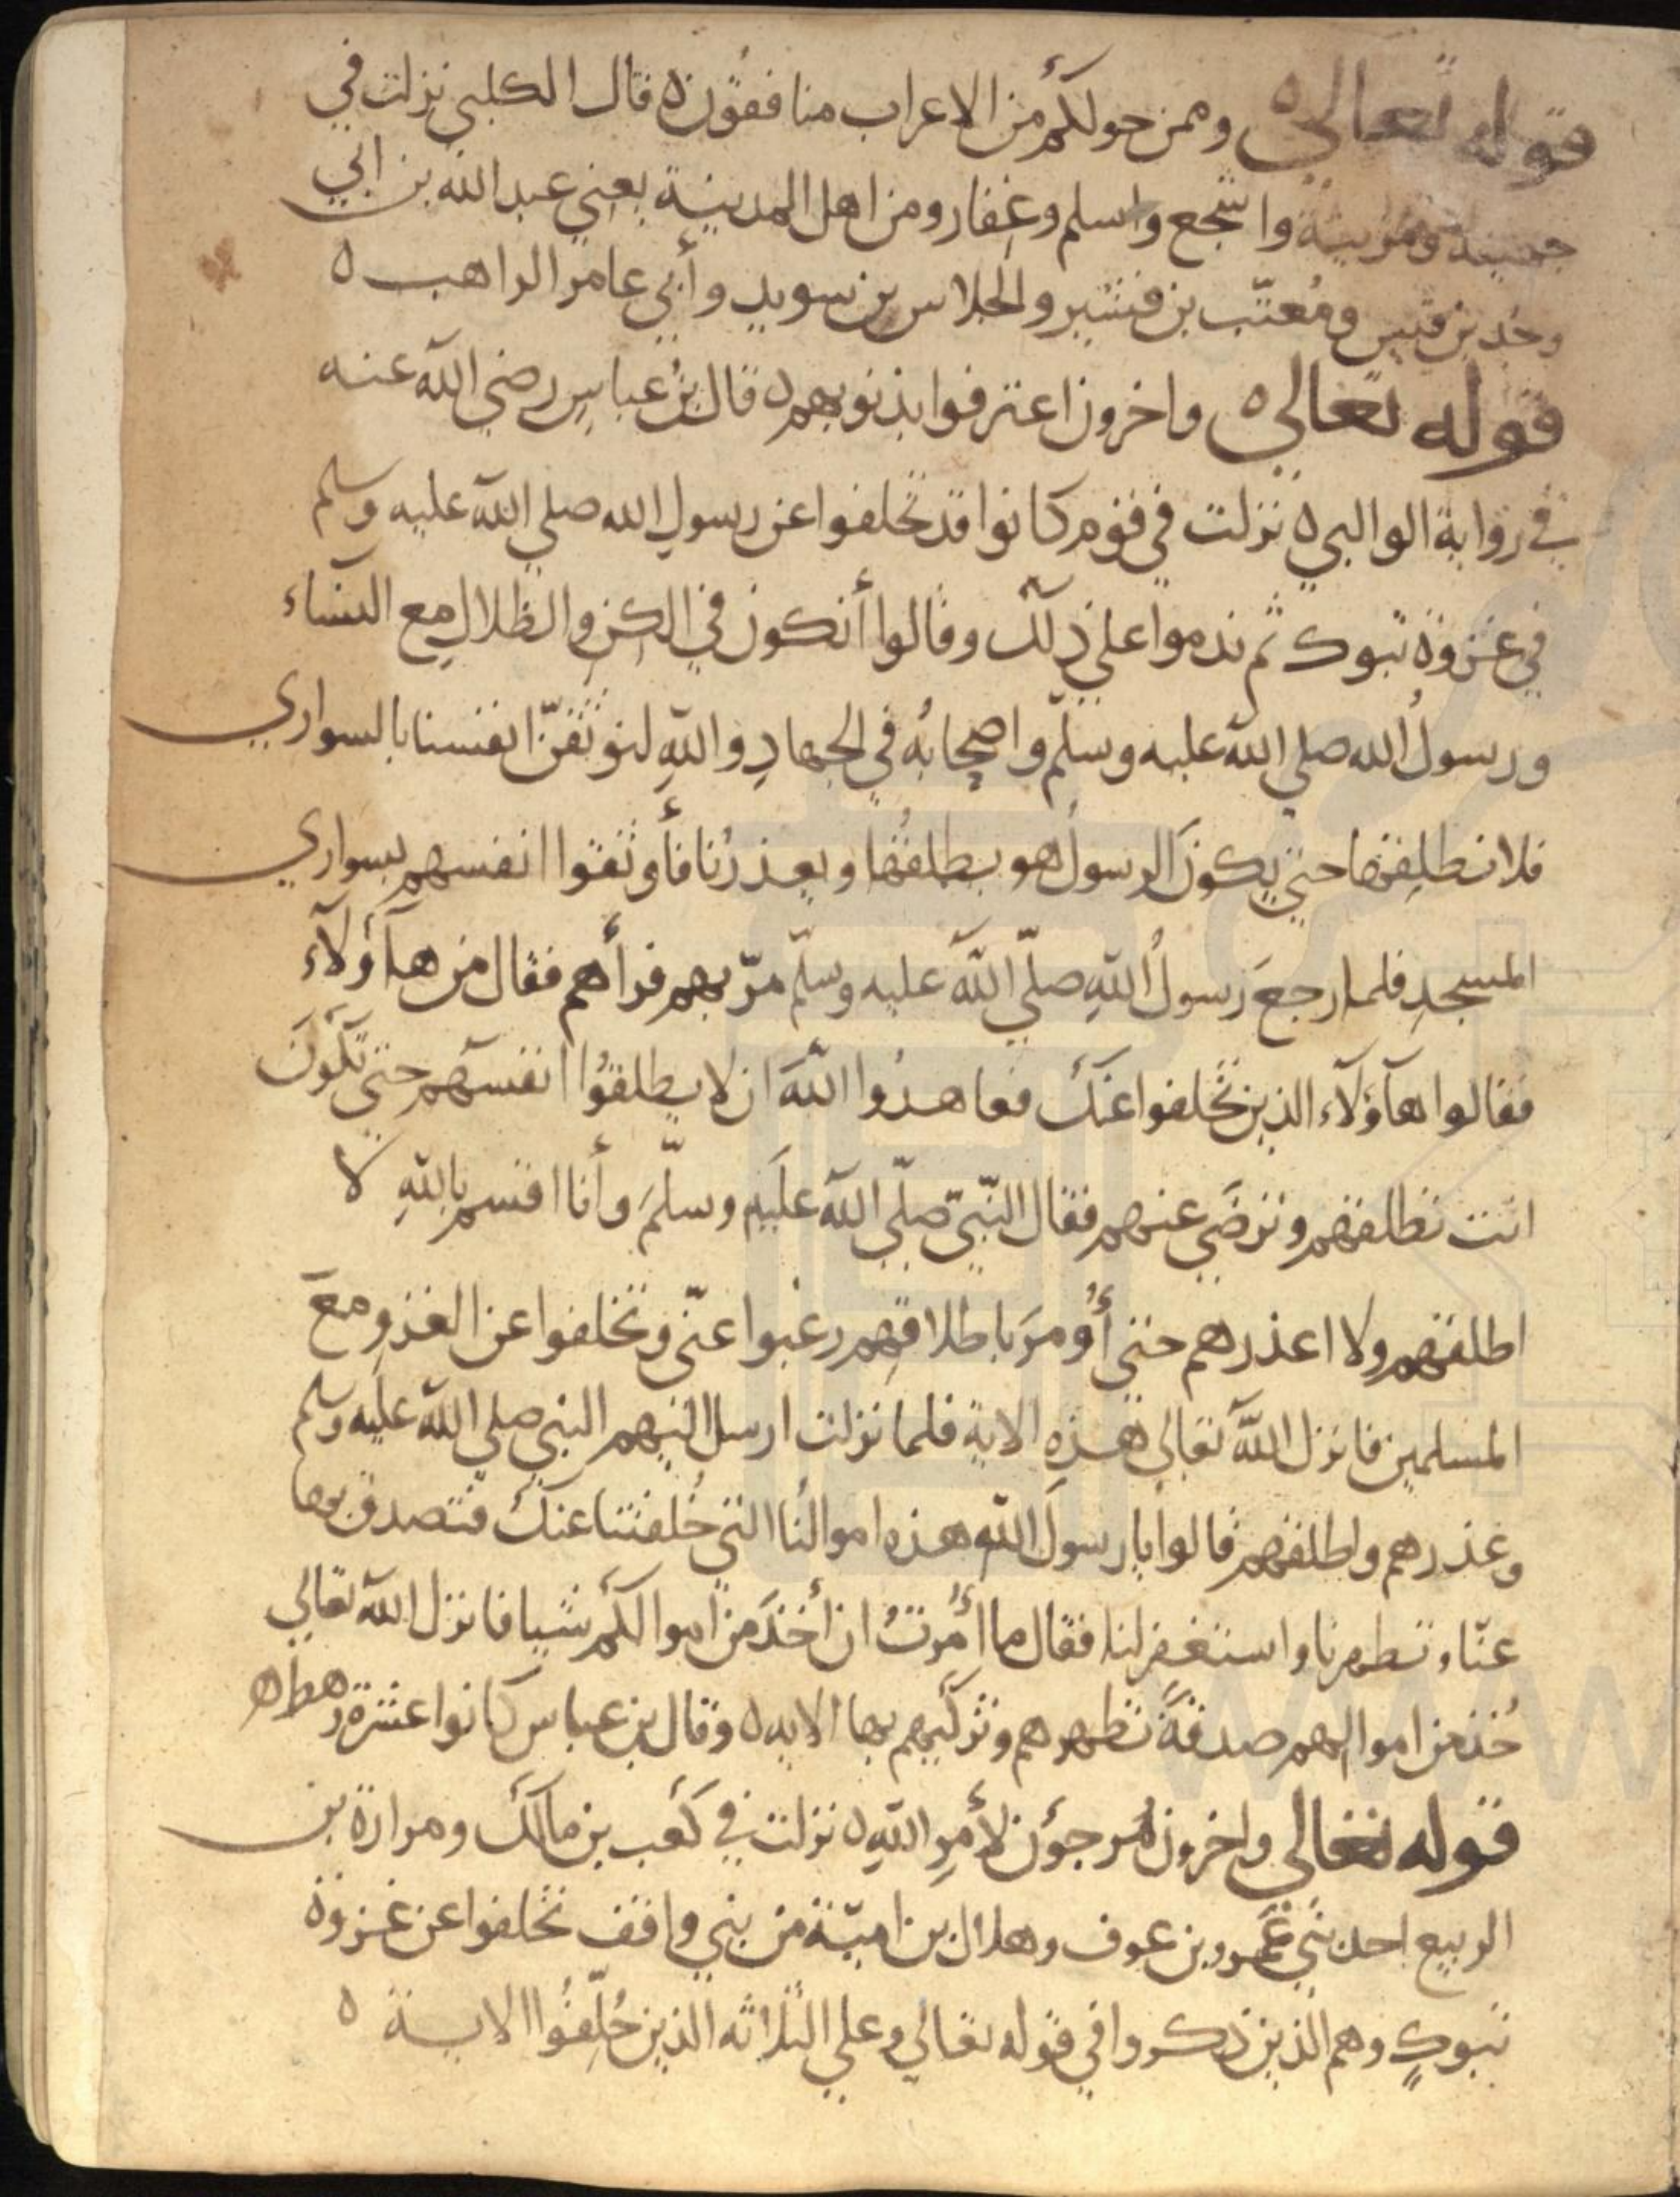 قوله تعالى ه وممن حولكم من الاعراب منافقون ه قال الكلبي نزلت في
جهينة ومزينة واشجع واسلم وغفار ومن اهل المدينة يعني عبد الله بن ابي
وجد بن قيس ومُعتّب بن قشير والجلاس بن سويد وأبي عامر الراهب ه
قوله تعالى ه واخرون اعترفوا بذنوبهم ه قال بنُ عباسٍ رضي الله عنه
في رواية الوالبي ه نزلت في قوم كانوا قد تخلفوا عن رسولِ الله صلي الله عليه وسلم
في غزوة تبوك ثم ندموا علي ذلك وقالوا أنكون في الكنِ والظلالِ مع النساء
ورسولُ الله صلي الله عليه وسلّم واصحابُه في الجهادِ واللهِ لنوثقنّ انفسنا بالسواري
فلا نطلقها حتي يكونَ الرسولُ هو يطلقُها ويعذرُنا فأوثقوا انفسهم بسواري
المسجدِ فلما رجعَ رسولُ اللهِ صلّي اللهُ عليه وسلّم مرّ بهم فرأهم فقال من هآؤلآء
فقالوا هآؤلآء الذين تخلفوا عنك فعاهدُوا اللهَ ان لا يطلقُوا انفسهم حتي تكونَ
انت تطلقهم وترضَي عنهم فقال النّبيّ صلّي الله علَيه وسلّمَ وأنا اقسم باللهِ لا
اطلقهم ولا اعذرهم حتي أُومرَ باطلاقهِم رغبوا عنّي وتخلفوا عن الغزوِ معَ
المسلمين فانزل اللهُ تعالي هذهِ الاية فلما نزلت ارسل اليهم النبي صلي الله عليه وسلم
وعذرهم واطلقهم قالوا يا رسولَ اللهِ هذه اموالُنا التي خُلفتنا عنك فتصدق بها
عنّا وتطهرنا واستغفر لنا فقال ما اُمرتُ ان أخذَ من اموالكم شيا فانزل الله تعالي
خُذ من اموالهم صدقةً تطهرهم وتزكيهم بها الايه ه وقال بن عباس كانوا عشرة رهط ه
قوله تعالي واخرون مُرجؤن لأمرِ اللهِ ه نزلت في كعب بن مالك ومرارة بن
الربيع احد بني عَمرو بن عوف وهلال بن اميّة من بني واقف تخلفوا عن غزوة
تبوكٍ وهم الذين ذكروا في قوله تعالي وعلي الثلاثه الذين خُلِّفُوا الاية ه